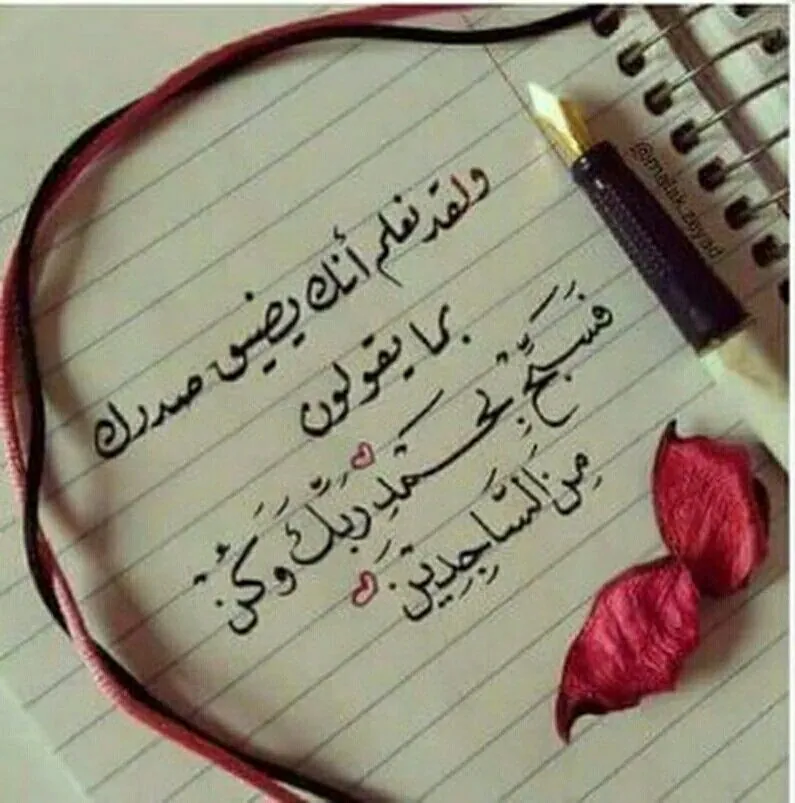 ولقد نعلم أنك يضيق صدرك
بما يقولون
فَسَبِّحْ بِحَمْدِ رَبِّكَ وَكُنْ
مِنَ السَّاجِدِينَ
@malak.zayad